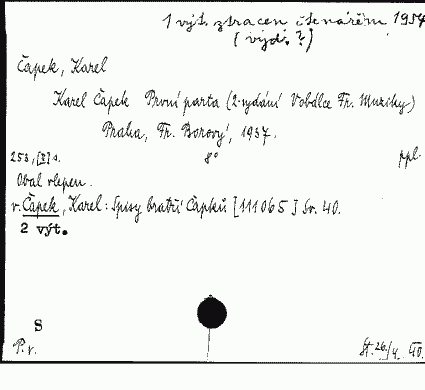 1 výt. ztracen čtenářem 1954
(výd. ?)
Čapek, Karel
Karel Čapek První parta (2. vydání V obálce Fr. Muziky)
Praha, Fr. Borový, 1937.
253, [II] s. 8° ppl.
Obal vlepen.
v. Čapek, Karel: Spisy bratří Čapků [111065] Sv. 40.
2 výt.
S
P. v. St. 26/4. 40.